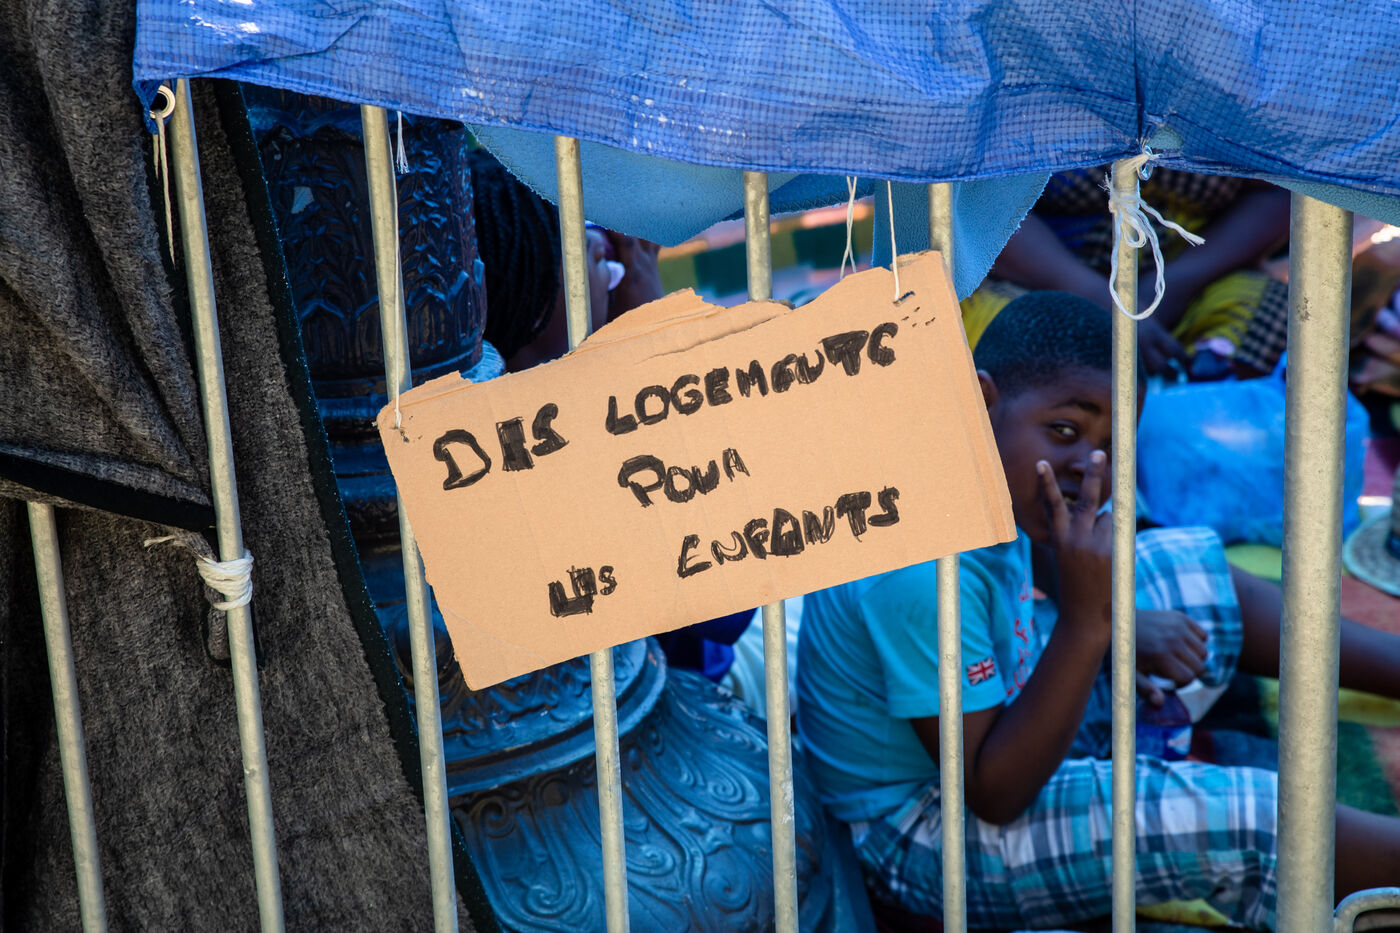 DES LOGEMENTS
POUR
LES ENFANTS